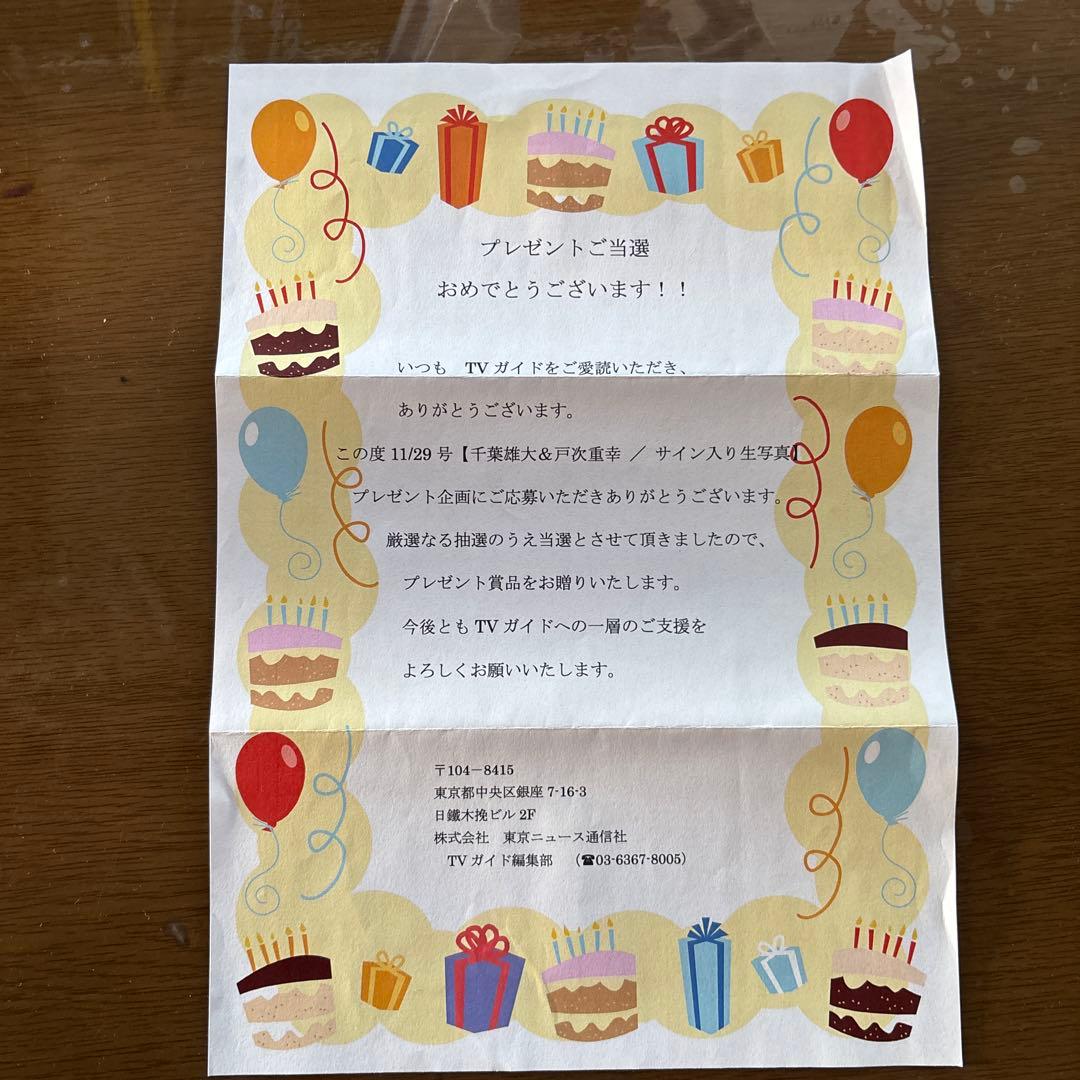 プレゼントご当選
おめでとうございます！！
いつも　TVガイドをご愛読いただき、
ありがとうございます。
この度 11/29 号【千葉雄大＆戸次重幸 ／ サイン入り生写真】
プレゼント企画にご応募いただきありがとうございます。
厳選なる抽選のうえ当選とさせて頂きましたので、
プレゼント賞品をお贈りいたします。
今後とも TV ガイドへの一層のご支援を
よろしくお願いいたします。
〒104－8415
東京都中央区銀座 7-16-3
日鐵木挽ビル 2F
株式会社　東京ニュース通信社
TV ガイド編集部　（☎03-6367-8005）